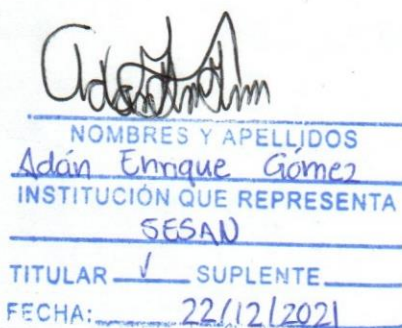 NOMBRES Y APELLIDOS
Adán Enrique Gómez
INSTITUCIÓN QUE REPRESENTA
SESAN
TITULAR ✓ SUPLENTE
FECHA: 22/12/2021